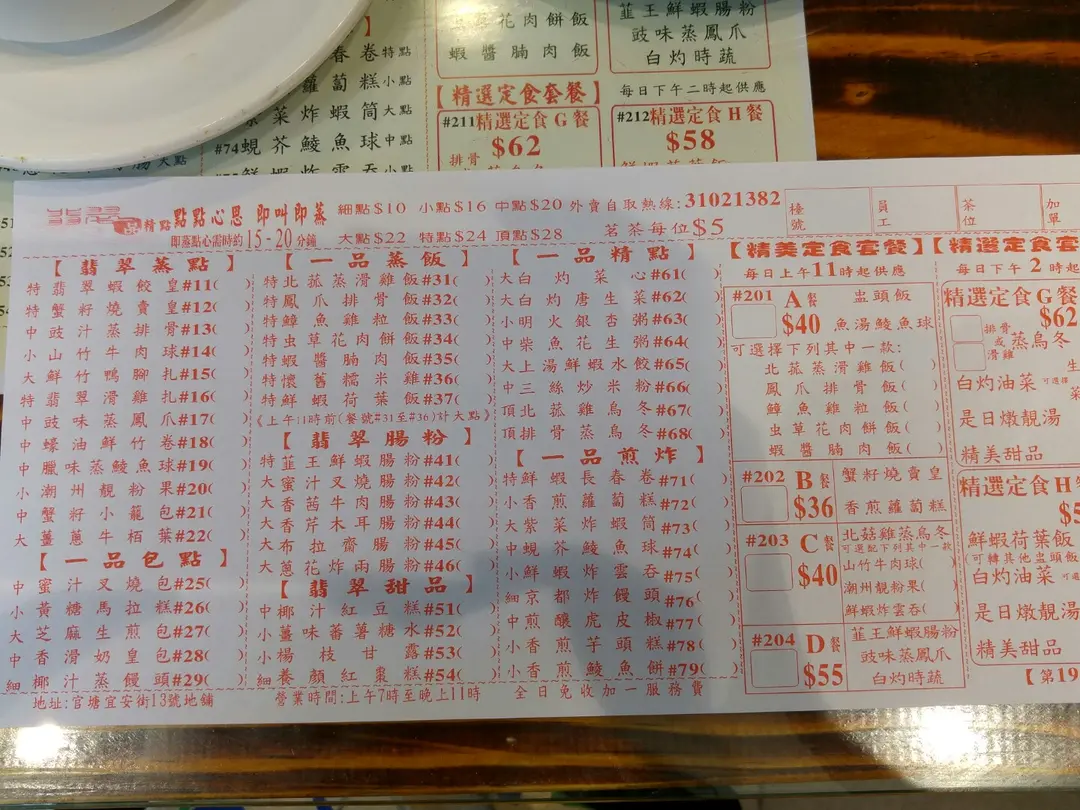 春卷特點
蘿蔔糕小點
菜炸蝦筒大點
#74蜆芥鯪魚球中點
花肉餅飯
蝦醬腩肉飯
【精選定食套餐】
#211精選定食G餐
$62
排骨
韮王鮮蝦腸粉
豉味蒸鳳爪
白灼時蔬
每日下午二時起供應
#212精選定食H餐
$58
翡翠
精點點點心思 即叫即蒸
即蒸點心需時約15-20分鐘
細點$10 小點$16 中點$20 外賣自取熱線:31021382
大點$22 特點$24 頂點$28 茗茶每位$5
檯號
員工
茶位
加單
【翡翠蒸點】
特翡翠蝦餃皇#11( )
特蟹籽燒賣皇#12( )
中豉汁蒸排骨#13( )
小山竹牛肉球#14( )
大鮮竹鴨腳扎#15( )
特翡翠滑雞扎#16( )
中豉味蒸鳳爪#17( )
中蠔油鮮竹卷#18( )
中臘味蒸鯪魚球#19( )
小潮州靚粉果#20( )
中蟹籽小籠包#21( )
大薑蔥牛栢葉#22( )
【一品包點】
中蜜汁叉燒包#25( )
小黃糖馬拉糕#26( )
大芝麻生煎包#27( )
中香滑奶皇包#28( )
細椰汁蒸饅頭#29( )
【一品蒸飯】
特北菰蒸滑雞飯#31( )
特鳳爪排骨飯#32( )
特鱆魚雞粒飯#33( )
特虫草花肉餅飯#34( )
特蝦醬腩肉飯#35( )
特懷舊糯米雞#36( )
特鮮蝦荷葉飯#37( )
《上午11時前(餐號#31至#36)計大點》
【翡翠腸粉】
特韮王鮮蝦腸粉#41( )
大蜜汁叉燒腸粉#42( )
大香茜牛肉腸粉#43( )
大香芹木耳腸粉#44( )
大布拉齋腸粉#45( )
大蔥花炸兩腸粉#46( )
【翡翠甜品】
中椰汁紅豆糕#51( )
小薑味蕃薯糖水#52( )
小楊枝甘露#53( )
細養顏紅棗糕#54( )
【一品精點】
大白灼菜心#61( )
大白灼唐生菜#62( )
小明火銀杏粥#63( )
中柴魚花生粥#64( )
大上湯鮮蝦水餃#65( )
中三絲炒米粉#66( )
頂北菰雞烏冬#67( )
頂排骨蒸烏冬#68( )
【一品煎炸】
特鮮蝦長春卷#71( )
小香煎蘿蔔糕#72( )
大紫菜炸蝦筒#73( )
中蜆芥鯪魚球#74( )
小鮮蝦炸雲吞#75( )
細京都炸饅頭#76( )
中煎釀虎皮椒#77( )
小香煎芋頭糕#78( )
小香煎鯪魚餅#79( )
【精美定食套餐】
每日上午11時起供應
#201 A餐 盅頭飯
$40 魚湯鯪魚球
可選擇下列其中一款:
北菰蒸滑雞飯( )
鳳爪排骨飯( )
鱆魚雞粒飯( )
虫草花肉餅飯( )
蝦醬腩肉飯( )
#202 B餐 蟹籽燒賣皇
$36 香煎蘿蔔糕
#203 C餐 北菇雞蒸烏冬
可選配下列其中一款
$40 山竹牛肉球( )
潮州靚粉果( )
鮮蝦炸雲吞( )
#204 D餐 韮王鮮蝦腸粉
豉味蒸鳳爪
$55 白灼時蔬
【精選定食套
每日下午2時起
精選定食G餐
$62
排骨或滑雞 蒸烏冬
白灼油菜
是日燉靚湯
精美甜品
精選定食H
鮮蝦荷葉飯
(可轉其他盅頭飯
白灼油菜
是日燉靚湯
精美甜品
【第19
地址:官塘宜安街13號地舖
營業時間:上午7時至晚上11時
全日免收加一服務費